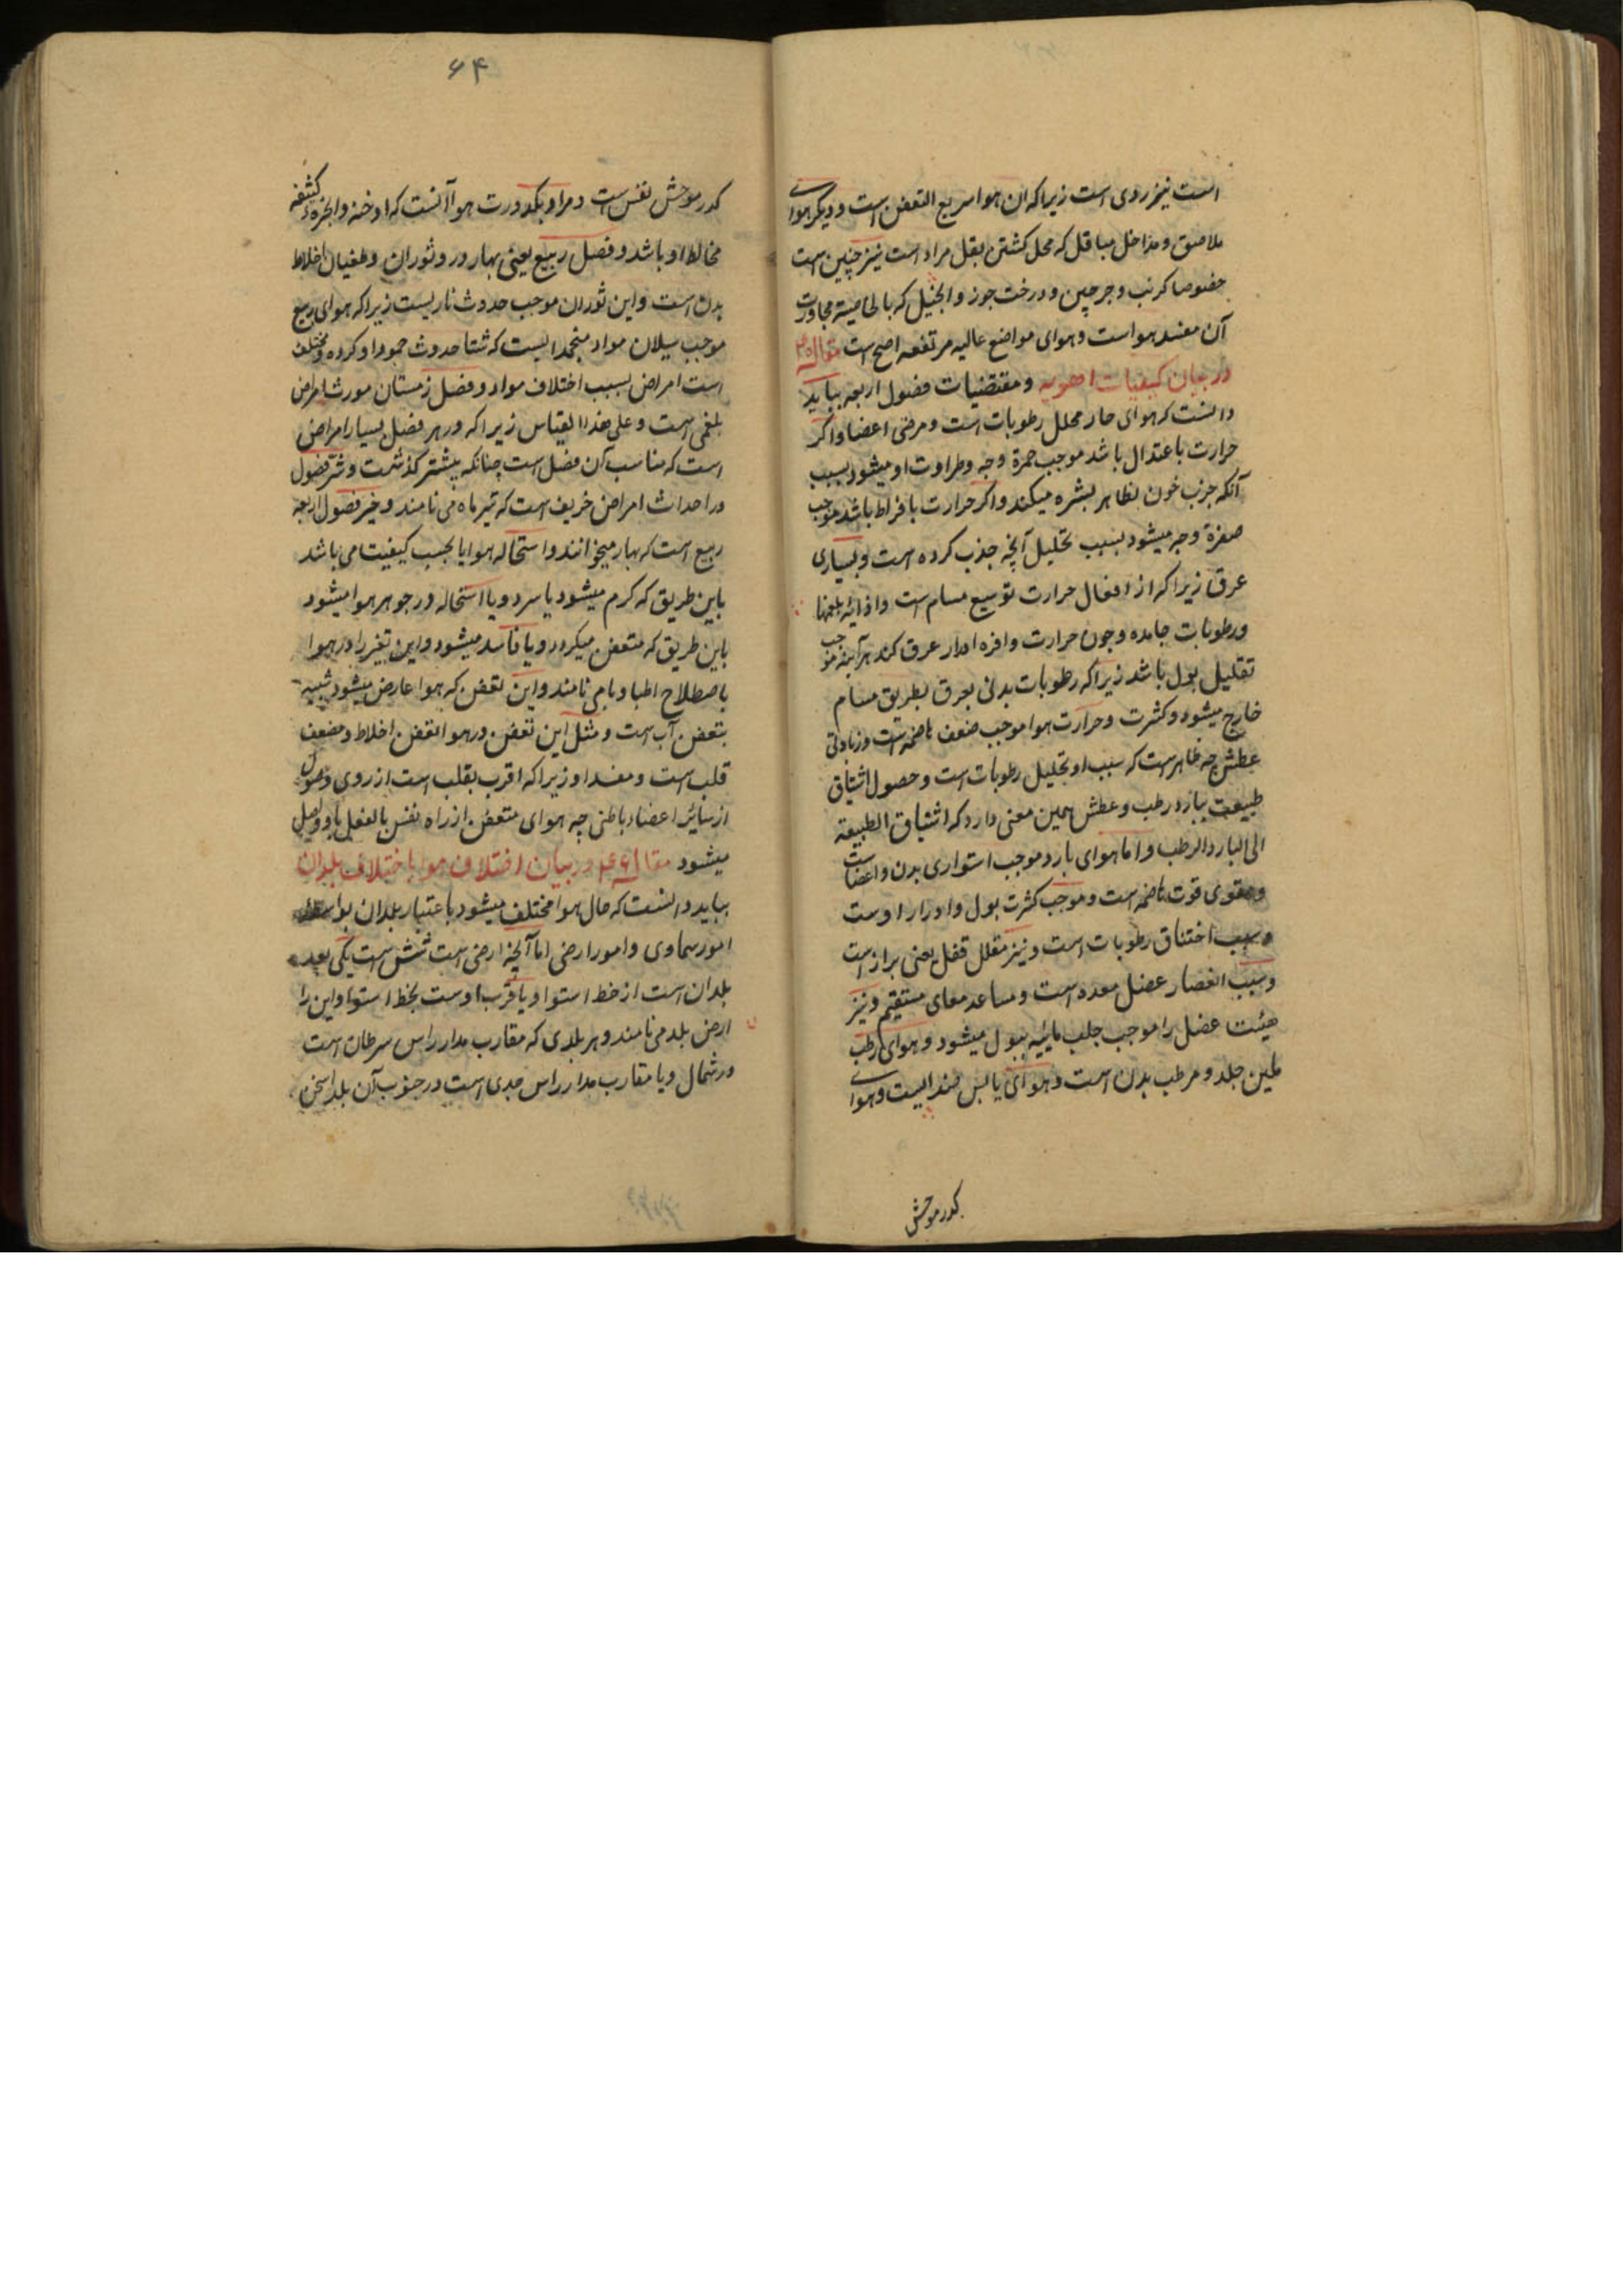 است نیز ردی است زیرا که ان هوا سریع التعفن است و دیگر هوای
ملاصق و مداخل مباقل که محل کشتن بقل مراد است نیز چنین است
خصوصا کرنب و جرجیر و درخت جوز و انجیر که بالخاصیة مجاورت
آن مفسد هواست و هوای مواضع عالیه مرتفعه اصح است مقاله ۴۵
در بیان کیفیات اهویه و مقتضیات فصول اربعه بباید
دانست که هوای حار محلل رطوبات است و مرخی اعضا و اگر
حرارت باعتدال باشد موجب حمرة وجه و طراوت او میشود بسبب
آنکه جزب خون بظاهر بشره میکند و اگر حرارت بافراط باشد موجب
صفرة وجه میشود بسبب تحلیل آنچه جذب کرده است و بسیاری
عرق زیرا که از افعال حرارت توسیع مسام است و اذابة بلغمها
و رطوبات جامده و چون حرارت وافره ادرار عرق کند هر آینه موجب
تقلیل بول باشد زیرا که رطوبات بدنی بعرق بطریق مسام
خارج میشود و کثرت و حرارت هوا موجب ضعف هاضمه است و زیادتی
عطش چه ظاهر است که سبب او تحلیل رطوبات است و حصول اشتیاق
طبیعت ببارد رطب و عطش همین معنی دارد که اشتیاق الطبیعة
الی البارد الرطب و اما هوای بارد موجب استواری بدن و اعضاست
و مقوی قوت هاضمه است و موجب کثرت بول و ادرار اوست
و سبب اختناق رطوبات است و نیز مقلل ثفل یعنی براز است
و سبب انعصار عضل معده است و مساعد معای مستقیم و نیز
هیئت عضل را موجب جلب مائیه ببول میشود و هوای رطب
ملین جلد و مرطب بدن است و هوای یابس ضد الیست و هوای
کدر موحش
۶۴
کدر موحش نفس است و مراد بکدورت هوا آنست که ادخنه و ابخرهٔ کثیفه
مخالط او باشد و فصل ربیع یعنی بهار در و ثوران و طغیان اخلاط
بدن است و این ثوران موجب حدوث ناریست زیرا که هوای ربیع
موجب سیلان مواد منجمد الیست که شتا حدوث جمود او کرده و مختلف
است امراض بسبب اختلاف مواد و فصل زمستان مورث امراض
بلغمی است و علی هذا القیاس زیرا که در هر فصل بسیار امراض
است که مناسب آن فصل است چنانکه پیشتر گذشت و شر فصول
در احداث امراض خریف است که تیر ماه می نامند و خیر فصول اربعه
ربیع است که بهار میخوانند و استحاله هوا یا بحسب کیفیت می باشد
باین طریق که گرم میشود یا سرد و یا استحاله در جوهر هوا میشود
باین طریق که متعفن میگردد و یا فاسد میشود و این تغیر را در هوا
باصطلاح اطبا وبا می نامند و این تعفن که هوا عارض میشود شبیه
بتعفن آب است و مثل این تعفن در هوا تعفن اخلاط و مضعف
قلب است و مفسد او زیرا که اقرب بقلب است از روی وصول
از سائر اعضاء باطنی چه هوای متعفن از راه نفس بالفعل باو واصل
میشود مقاله ۴۶ در بیان اختلاف هوا باختلاف بلدان
بباید دانست که حال هوا مختلف میشود باعتبار بلدان بواسطه
امور سماوی و امور ارضی اما آنچه ارضی است شش است یکی بعد
بلدان است از خط استوا و یا قرب اوست بخط استوا و این را
ارض بلد می نامند و هر بلدی که مقارب مدار راس سرطان است
در شمال و یا مقارب مدار راس جدی است در جنوب آن بلد اسخن